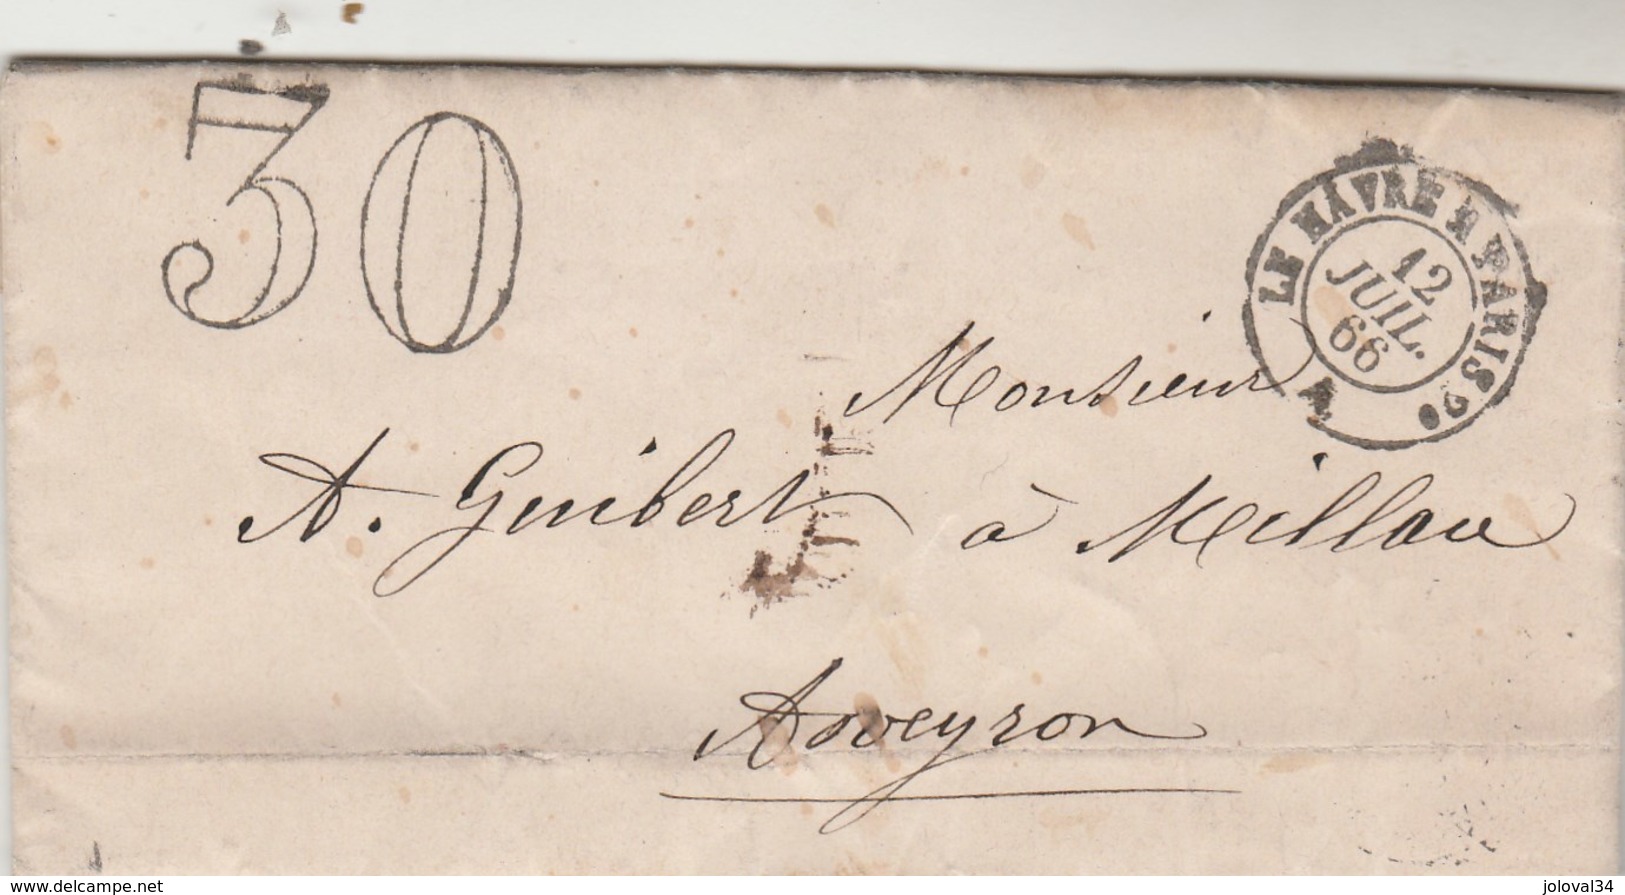 30
LE HAVRE A PARIS 2°
12
JUIL.
66
Monsieur
A. Guibert à Millau
Aveyron
www.delcampe.net
joloval34